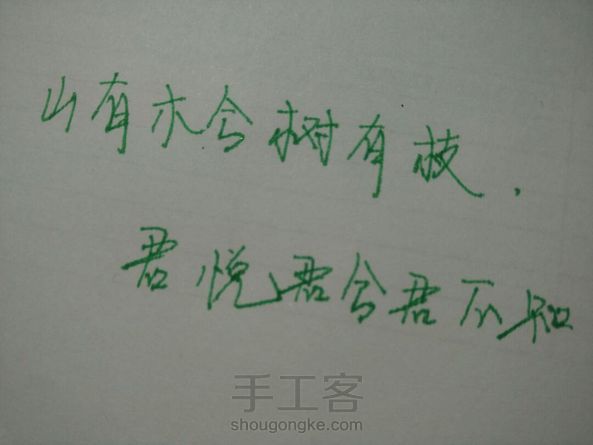 山有木兮树有枝.
君悦君兮君不知
手工客
shougongke.com